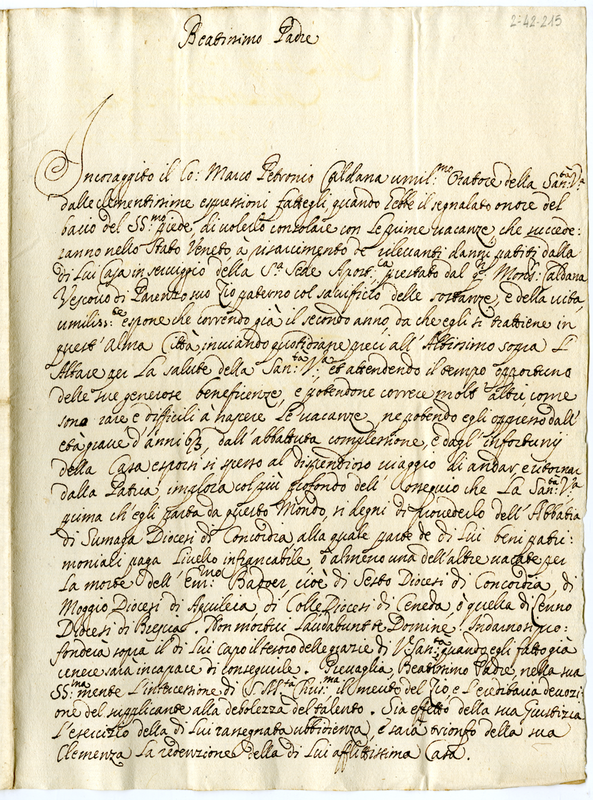 2-42-215
Beatissimo Padre
Incoraggito il Co: Marco Petronio Caldana umil:mo Oratore della San:tà V:a
dalle clementissime espressioni fattegli quando ebbe il segnalato onore del
bacio del SS:mo piede, di volerlo consolare con le prime vacanze, che succede:
ranno nello Stato Veneto à risarcimento de rilevanti danni patiti dalla
di Lui Casa in servigio della S:a Sede Apost:ca prestato dal q:m Mons: Caldana
Vescovo di Parenzo suo Zio paterno col sacrificio delle sostanze, e della vita,
umiliss:te espone che correndo già il secondo anno, da che egli si trattiene in
quest'Alma Città inviando quotidiane preci all'Altissimo sopra l'
Altare per la salute della San:tà V:a et attendendo il tempo opportuno
delle sue generose beneficenze, e potendone correre molt'altri come
sono rare e difficili a sapere le vacanze, ne potendo egli oppresso dall'
età grave d'anni 63, dall'abbattuta complessione, e dagl'infortunij
della Casa esporsi sì spesso al dispendioso viaggio di andar, e ritornar
dalla Patria, implora col più profondo dell'ossequio che la San:tà V:a
prima ch'egli parta da questo Mondo, si degni di provederlo dell'Abbatia
di Sumaga Diocesi di Concordia alla quale parte de di Lui beni patri:
moniali paga Livello infrancabile ò almeno una dell'altre vacate per
la morte dell'Em:mo Basver, cioè di Sesto Diocesi di Concordia, di
Moggio Diocesi di Aquileia, di Colle Diocesi di Ceneda, ò quella di Lenno
Diocesi di Brescia. Non mortui laudabunt te Domine! Indarno si pro:
fonderia sopra il di Lui Capo il tesoro delle grazie di V:a San:tà quando egli fatto già
cenere sarà incapace di conseguirle. Prevaglia, Beatissimo Padre, nella sua
SS:ma mente l'intercessione di S. M:tà Chris:ma il merito del Zio, e l'ereditaria devozi:
one del supplicante alla debolezza del talento. Sia effetto della sua Giustizia
l'esercizio della di Lui rassegnata ubbidienza, e sarà trionfo della sua
Clemenza la redenzione della di Lui afflittissima Casa.